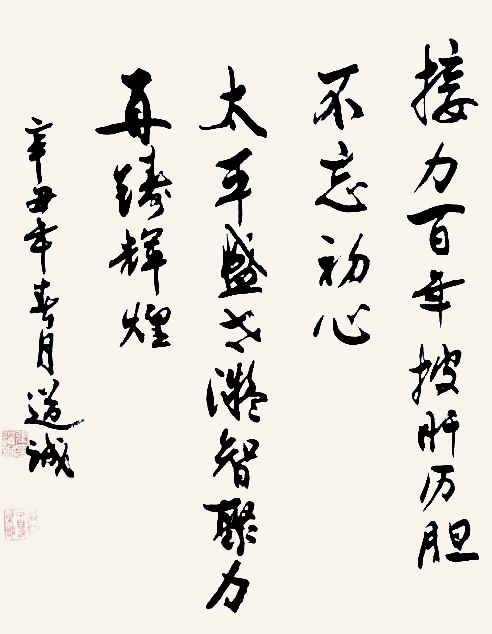 接力百年披肝历胆
不忘初心
太平盛世凝智聚力
再铸辉煌
辛丑年春月道诚